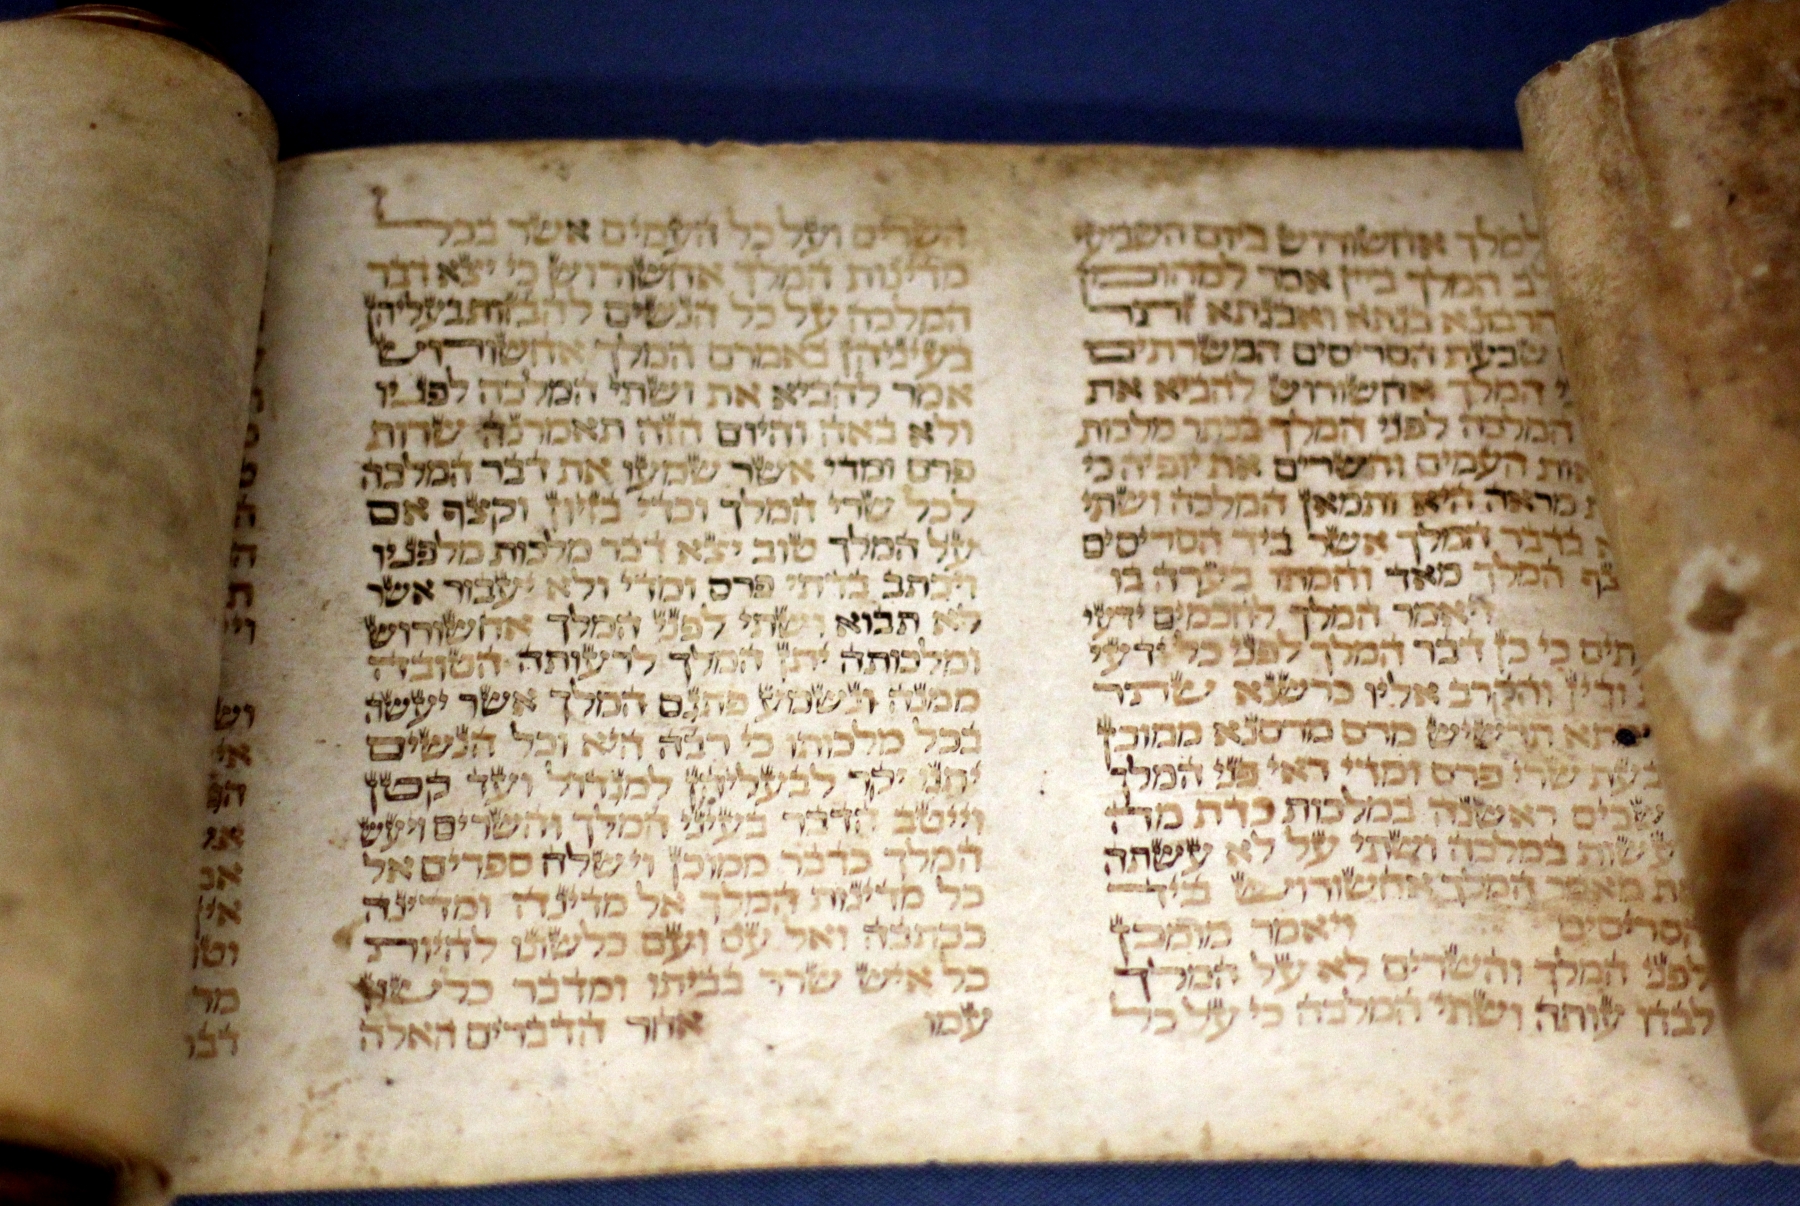 למלך אחשורוש ביום השביעי
המלך ביין אמר למהומן
בגתא ואבגתא זתר
שבעת הסריסים המשרתים
המלך אחשורוש להביא את
המלכה לפני המלך בכתר מלכות
העמים והשרים את יופיה כי
מראה היא ותמאן המלכה ושתי
בדבר המלך אשר ביד הסריסים
המלך מאד וחמתו בערה בו
ויאמר המלך לחכמים ידעי
כי כן דבר המלך לפני כל ידעי
ודין והקרב אליו כרשנא שתר
תרשיש מרס מרסנא ממוכן
שרי פרס ומדי ראי פני המלך
ראשנה במלכות כדת מה
לעשות במלכה ושתי על לא עשתה
את מאמר המלך אחשורוש ביד
הסריסים ויאמר מומכן
לפני המלך והשרים לא על המלך
לבדו עותה ושתי המלכה כי על כל
השרים ועל כל העמים אשר בכל
מדינות המלך אחשורוש כי יצא דבר
המלכה על כל הנשים להבזות בעליהן
בעיניהן באמרם המלך אחשורוש
אמר להביא את ושתי המלכה לפניו
ולא באה והיום הזה תאמרנה שרות
פרס ומדי אשר שמעו את דבר המלכה
לכל שרי המלך וכדי בזיון וקצף אם
על המלך טוב יצא דבר מלכות מלפניו
ויכתב בדתי פרס ומדי ולא יעבור אשר
לא תבוא ושתי לפני המלך אחשורוש
ומלכותה יתן המלך לרעותה הטובה
ממנה ונשמע פתגם המלך אשר יעשה
בכל מלכותו כי רבה היא וכל הנשים
יתנו יקר לבעליהן למגדול ועד קטן
וייטב הדבר בעיני המלך והשרים ויעש
המלך כדבר ממוכן וישלח ספרים אל
כל מדינות המלך אל מדינה ומדינה
ככתבה ואל עם ועם כלשונו להיות
כל איש שרר בביתו ומדבר כלשון
עמו אחר הדברים האלה